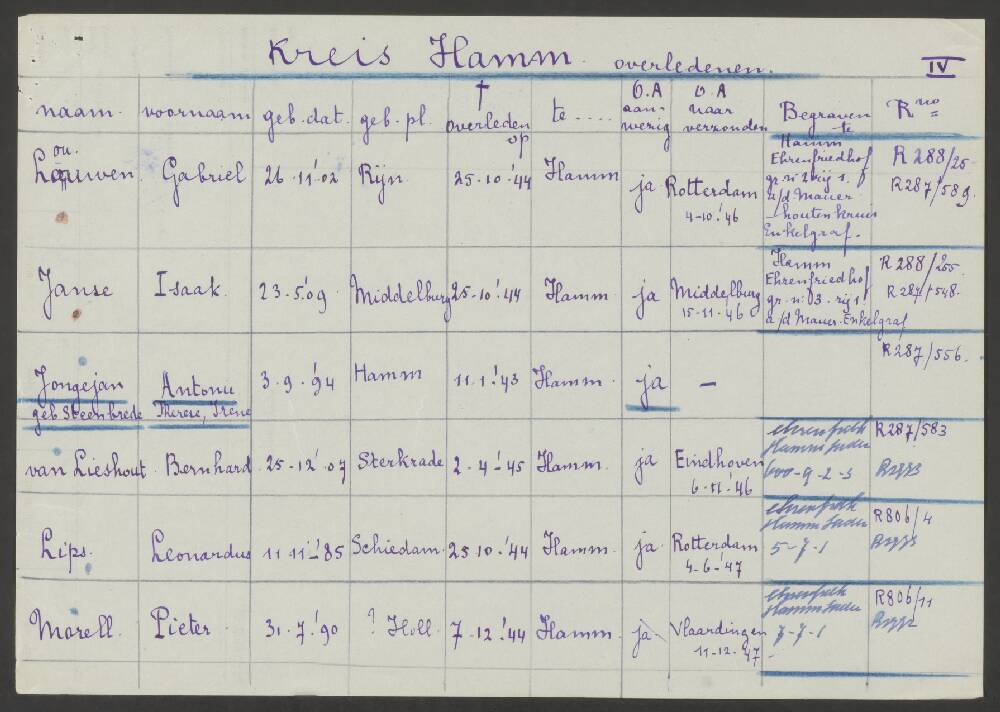 Kreis Hamm overledenen.
IV
naam. voornaam geb. dat. geb. pl. † overleden op te .... O.A aan-wezig O.A naar verzonden Begraven te R no
ou.
Louwen. Gabriel 26.11.'02 Rijn. 25-10-'44 Hamm ja Rotterdam
4-10-'46
Hamm
Ehrenfriedhof
gr. n: 2 rij 1.
a/d Mauer
houten kruis
Enkelgraf.
R 288/25
R 287/589.
Janse Isaak. 23.5.'09. Middelburg 25-10-'44 Hamm ja Middelburg
15-11-'46
Hamm
Ehrenfriedhof
gr. n: 3. rij 1
a/d Mauer. Enkelgraf
R 288/255.
R 287/548.
Jongejan Antonu 3.9.'94 Hamm 11.1.'43 Hamm. ja –
geb Steenbrede Therese, Irene
R 287/556.
van Lieshout Bernhard 25-12-'07 Sterkrade 2-4-'45 Hamm. ja Eindhoven
6-11-'46
Hamm
600-9-2-3
R 287/583
Lips. Leonardus 11-11-'85 Schiedam. 25-10-'44 Hamm. ja Rotterdam
4-6-'47
Hamm
5-7-1
R 806/4
Morell. Pieter 31.7.'90 ? Holl. 7-12-'44 Hamm. ja Vlaardingen
11-12-'47
Hamm
7-7-1
R 806/11